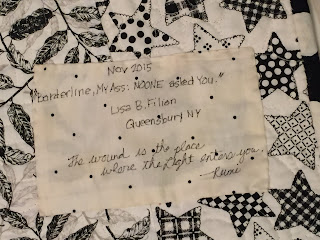 Nov 2015
"Borderline, My Ass: NOONE asked You."
Lisa B. Fillion
Queensbury NY
The wound is the place
where the Light enters you.
Rumi